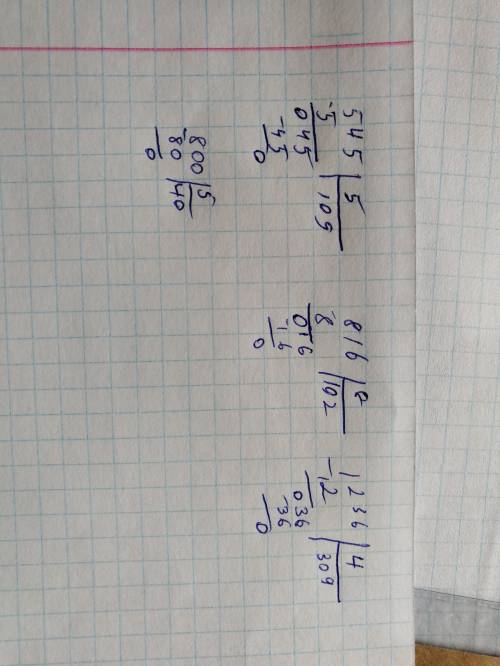 545 | 5
-5 | 109
045
-45
0
816 | 8
-8 | 102
016
-16
0
1236 | 4
-12 | 309
036
-36
0
800 | 5
-80 | 40
0